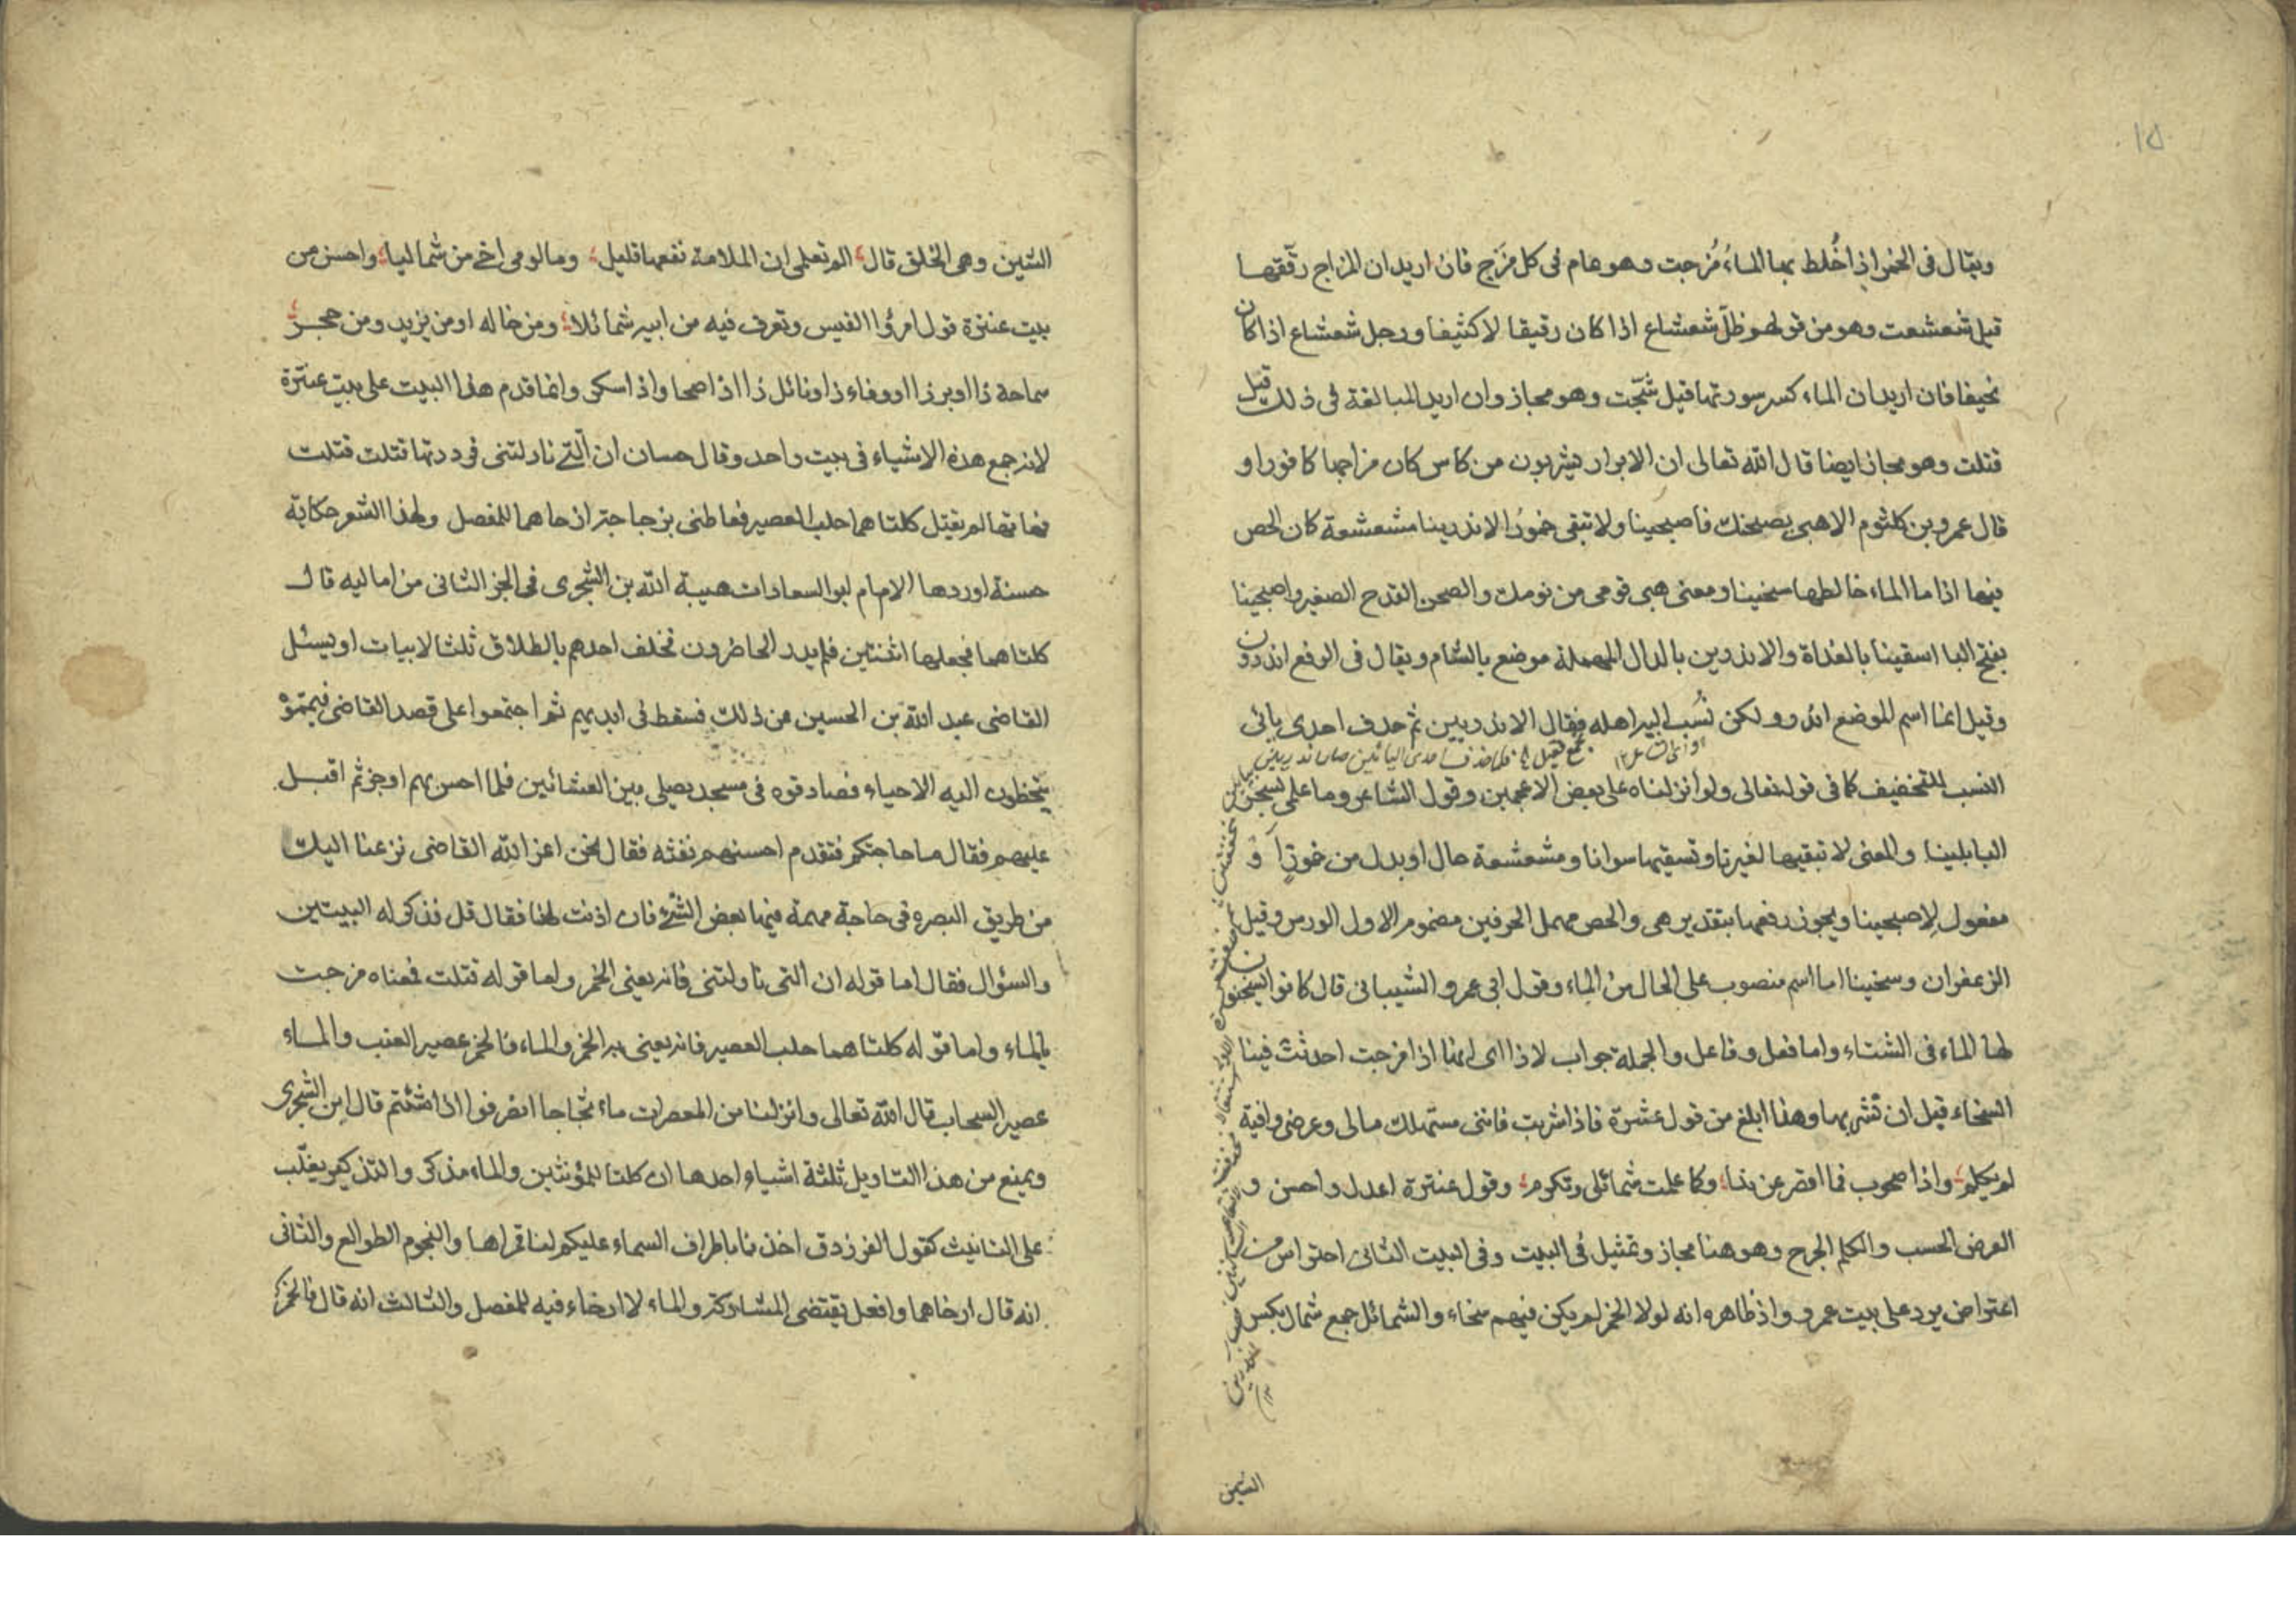 ١٥
ويقال فى الخمر اذا خُلط بها الماءُ مُزجت وهو عام فى كل مَزج فان اريد ان المزاج رقّقها
قيل شعشعت وهو من قولهم ظلّ شعشاع اذا كان رقيقا لا كثيفا ورجل شعشاع اذا كان
نحيفا فان اريد ان الماء كسر سورتها قيل شجّت وهو مجاز وان اريد المبالغة فى ذلك قيل
قتلت وهو مجاز ايضا قال الله تعالى ان الابرار يشربون من كاس كان مزاجها كافورا و
قال عمرو بن كلثوم الا هبى بصحنك فاصبحينا ولا تبقى خمورَ الاندرينا مشعشعة كان الحص
فيها اذا ما الماء خالطها سخينا ومعنى هبى قومى من نومك والصحن القدح الصغير واصبحينا
بفتح البا اسقينا بالغداة والاندرين بالدال المهملة موضع بالشام ويقال فى الرفع اندرون
وقيل انما اسم الموضع اندر ولكن نُسب اليه اهله فقال الاندريين ثم حذف احدى يائى
النسب للتخفيف كما فى قوله تعالى ولو انزلناه على بعض الاعجمين وقول الشاعر وما على بسحر
البابلينا والمعنى لا تبقيها لغيرنا وتسقيها سوانا ومشعشعة حال او بدل من خمورًا او
مفعول لاصبحينا ويجوز رفعها بتقدير هى والحص مهمل الحرفين مضموم الاول الورس وقيل
الزعفران وسخينا اما اسم منصوب على الحال من الماء وقول ابى عمرو الشيبانى قال كانوا يسخنون
لها الماء فى الشتاء واما فعل وفاعل والجملة جواب لاذا اى انها اذا مزجت احدثت فينا
السخاء قبل ان نشربها وهذا ابلغ من قول عنترة فاذا شربت فاننى مستهلك مالى وعرضى وافية
لم يكلم واذا صحوت فما اقصر عن ندا وكما علمت شمائلى وتكرمى وقول عنترة اعدل واحسن و
العرض الحسب والكلم الجرح وهو هنا مجاز وتمثيل فى البيت وفى البيت الثانى احتراس من
اعتراض يرد على بيت عمرو واذ ظاهره انه لولا الخمر لم يكن فيهم سخاء والشمائل جمع شمال بكسر
الشين
الشين وهى الخلق قال الم تعلمى ان الملامة نفعها قليل وما لومى اخى من شماليا واحسن من
بيت عنترة قول امرؤ القيس وتعرف فيه من ابيه شمائلا ومن خاله او من يزيد ومن حجر
سماحة ذا وبر ذا ووفاء ذا ونائل ذا اذا صحا واذا سكر وانما قدم هذا البيت على بيت عنترة
لانه جمع هذه الاشياء فى بيت واحد وقال حسان ان التى ناولتنى فرددتها قتلت قتلت
فهاتها لم تقتل كلتاهما حلب العصير فعاطنى بزجاجة ارخاهما للمفصل ولهذا الشعر حكاية
حسنة اوردها الامام ابو السعادات هيبة الله بن الشجرى فى الجز الثانى من اماليه قال
كلتاهما فجعلها اثنتين فلم يدر الحاضرون فحلف احدهم بالطلاق ثلثا لا يبات او يسئل
القاضى عبد الله بن الحسين من ذلك فسقط فى ايديهم ثم اجتمعوا على قصد القاضى فيمموه
يتخطون اليه الاحياء فصادقوه فى مسجد يصلى بين العشائين فلما احس بهم اوجز ثم اقبل
عليهم فقال ما حاجتكم فتقدم احسنهم نفثه فقال نحن اعز الله القاضى نزعنا اليك
من طريق البصره فى حاجة مهمة فيها بعض الشئ فان اذنت لنا فقال قل فذكر له البيتين
والسؤال فقال اما قوله ان التى ناولتنى فانه يعنى الخمر واما قوله قتلت فمعناه مزجت
بالماء واما قوله كلتاهما حلب العصير فانه يعنى به الخمر والماء فالخمر عصير العنب والماء
عصير السحاب قال الله تعالى وانزلنا من المعصرات ماء ثجاجا انصرفوا اذا شئتم قال ابن الشجرى
ويمنع من هذا التاويل ثلثة اشياء احدها ان كلتا للمؤنثين والماء مذكر والتذكير يغلّب
على التانيث كقول الفرزدق اخذنا باطراف السماء عليكم لنا قمراها والنجوم الطوالع والثانى
انه قال ارخاهما وافعل يقتضى المشاركة والماء لا ارخاء فيه للمفصل والثالث انه قال فالخمر